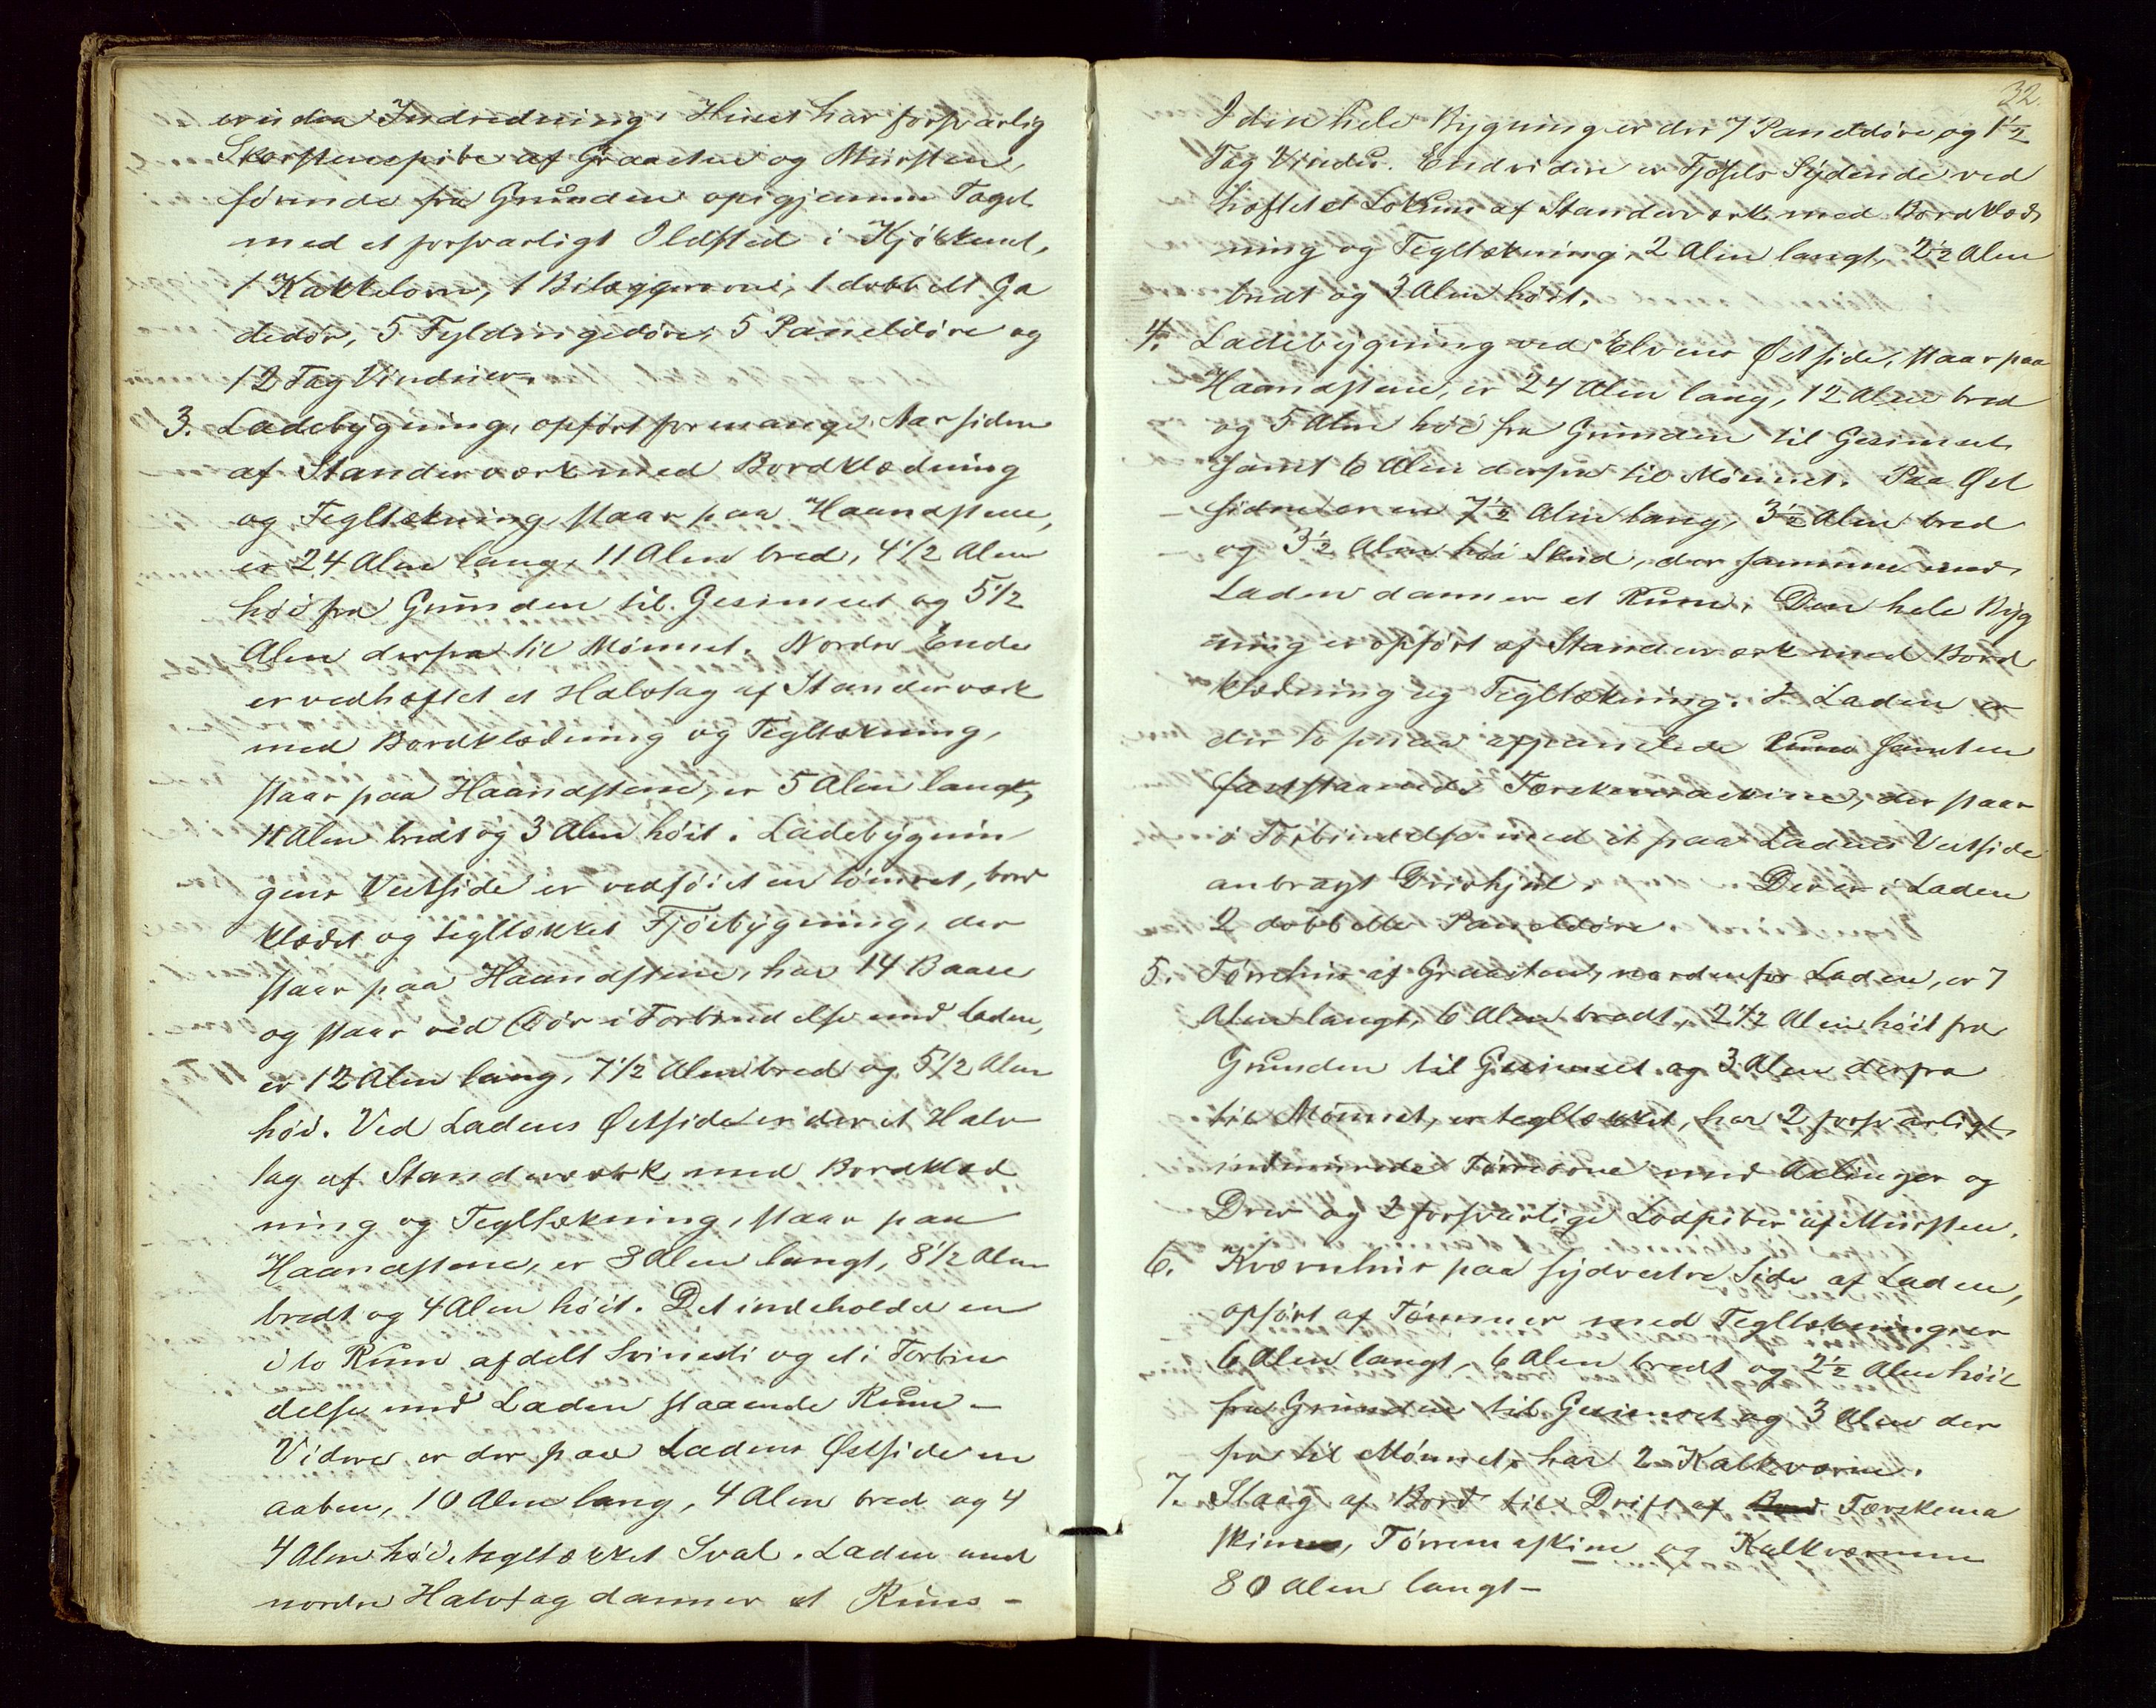 er uden Indredning. Huset har forsvarlig
Skorstenspibe af Graasten og Mursten,
förende fra Grunden opigjennem Taget
med et forsvarligt Ildsted i Kjökkenet,
1 Kakkelovn, 1 Bilæggerovn, 1 dobbelt Ga
dedör, 5 Fyldningsdöre, 5 Paneldöre og
12 Fag Vinduer.
3. Ladebygning, opfört for mange Aar siden
af Standerværk med Bordklædning
og Tegltækning, staar paa Haandstene,
er 24 Alen lang, 11 Alen bred, 4 1/2 Alen
höi fra Grunden til Gesimset og 5 1/2
Alen derfra til Mönnet. Nordre Ende
er vedhæftet et Halvtag af Standerværk
med Bordklædning og Tegltækning,
staar paa Haandstene, er 5 Alen langt,
11 Alen bredt og 3 Alen höit. Ladebygnin
gens Vestside er vedföiet en tömret, bord
klædt og tegltækket Fjösbygning, der
staar paa Haandstene, har 14 Baase
og staar ved Dör i Forbindelse med Laden,
er 12 Alen lang, 7 1/2 Alen bred og 5 1/2 Alen
höi. Ved Ladens Östside er der et Halv
tag af Standerværk med Bordklæd
ning og Tegltækning, staar paa
Haandstene, er 8 Alen langt, 8 1/2 Alen
bredt og 4 Alen höit. Det indeholder en
i to Rum afdelt Svinesti og et i Forbin
delse med Laden staaende Rum –
Videre er der paa Ladens Östside en
aaben, 10 Alen lang, 4 Alen bred og 4
4 Alen höi, tegltækket Sval. Laden med
nordre Halvtag danner et Rum –
32.
I den hele Bygning er der 7 Paneldöre og 1 1/2
Fag Vindu. Endvidere er Fjösets Sydende ved
hæftet et Lokum af Standerværk med Bordklæd
ning og Tegltækning, 2 Alen langt, 2 1/2 Alen
bredt og 3 Alen höit.
4. Ladebygning ved Elvens Östside, staar paa
Haandstene, er 24 Alen lang, 12 Alen bred
og 5 Alen höi fra Grunden til Gesimset
samt 6 Alen derfra til Mönnet. Paa Öst
siden er en 7 1/2 Alen lang, 3 1/2 Alen bred
og 3 1/2 Alen höi Skud, der sammen med
Laden danner et Rum. Den hele Byg
ning er opfört af Standerværk med Bord
klædning og Tegltækning. I Laden er
der to smaa afpanelede Rum samt en
faststaaende Tærskemaskine, der staar
i Forbindelse med et paa Ladens Vestside
anbragt Drivhjul. Der er i Laden
2 dobbelte Paneldöre.
5. Törrehus af Graasten, nordenfor Laden, er 7
Alen langt, 6 Alen bredt, 2 1/2 Alen höit fra
Grunden til Gesimset og 3 Alen derfra
til Mönnet, er tegltækket, har 2 forsvarligt
indmurede Törreovne med Axlinger og
Drev og 2 forsvarlige Lodpiber af Mursten.
6. Kværnhus paa sydvestre Side af Laden,
opfört af Tömmer med Tegltækning, er
6 Alen langt, 6 Alen bredt og 2 1/2 Alen höit
fra Grunden til Gesimset og 3 Alen der
fra til Mönnet, har 2 Kalkværne.
7. Slaag af Bord til Drift af Tærskema
skinen, Törremaskine og Kalkværnene
80 Alen langt –